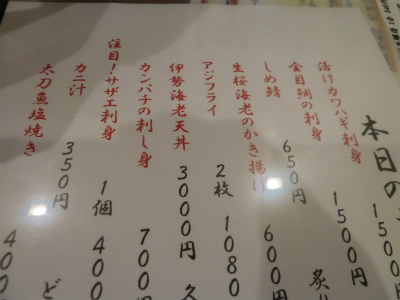 本日の
活けカワハギ刺身 1500円
金目鯛の刺身 1500円
しめ鯖 650円
生桜海老のかき揚げ 600
アジフライ 2枚 1080
伊勢海老天丼 3000円
カンパチの刺し身 700
注目!サザエ刺身 1個 400
カニ汁 350円
太刀魚塩焼き 400